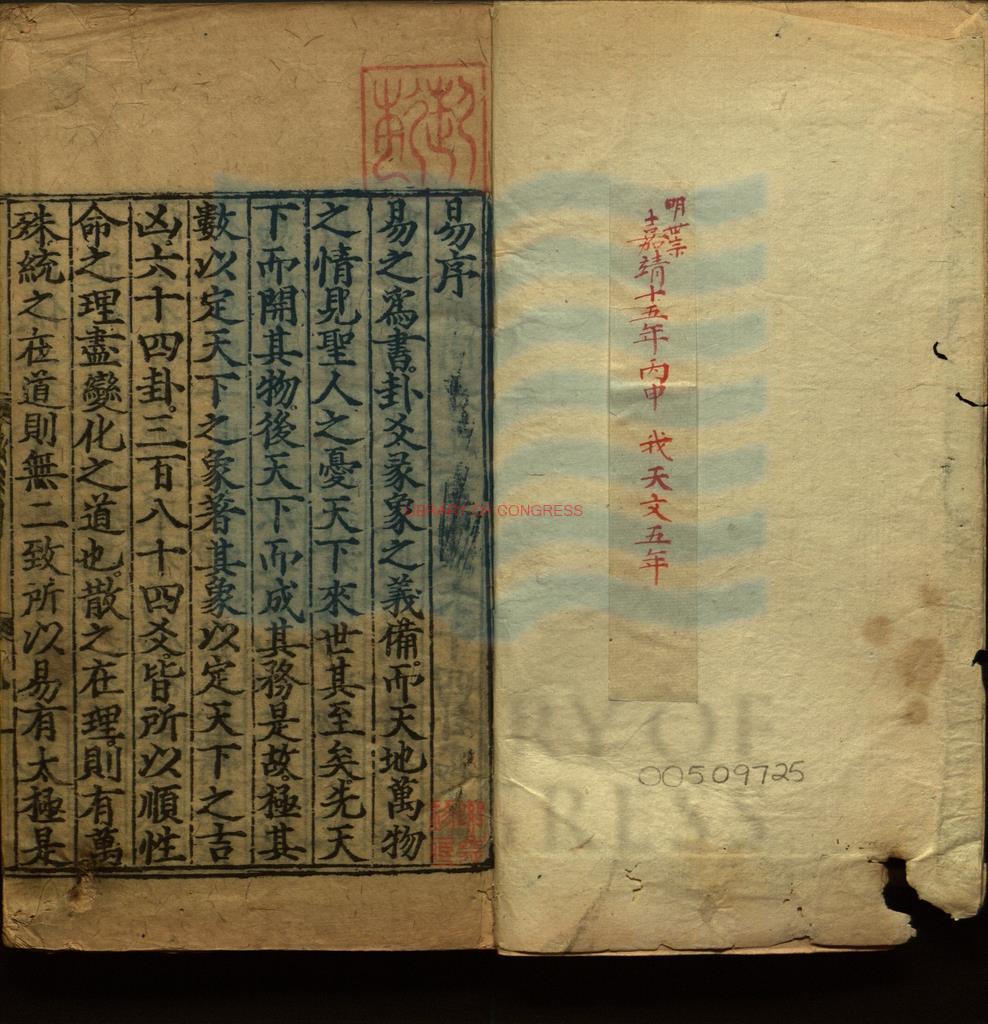 明世宗
嘉靖十五年丙申 我天文五年
00509725
LIBRARY OF CONGRESS
易序
易之爲書。卦爻彖象之義備。而天地萬物
之情見聖人之憂天下來世其至矣。先天
下而開其物。後天下而成其務是故。極其
數以定天下之象著其象以定天下之吉
凶。六十四卦。三百八十四爻。皆所以順性
命之理盡變化之道也。散之在理。則有萬
殊。統之在道則無二致所以易有太極是